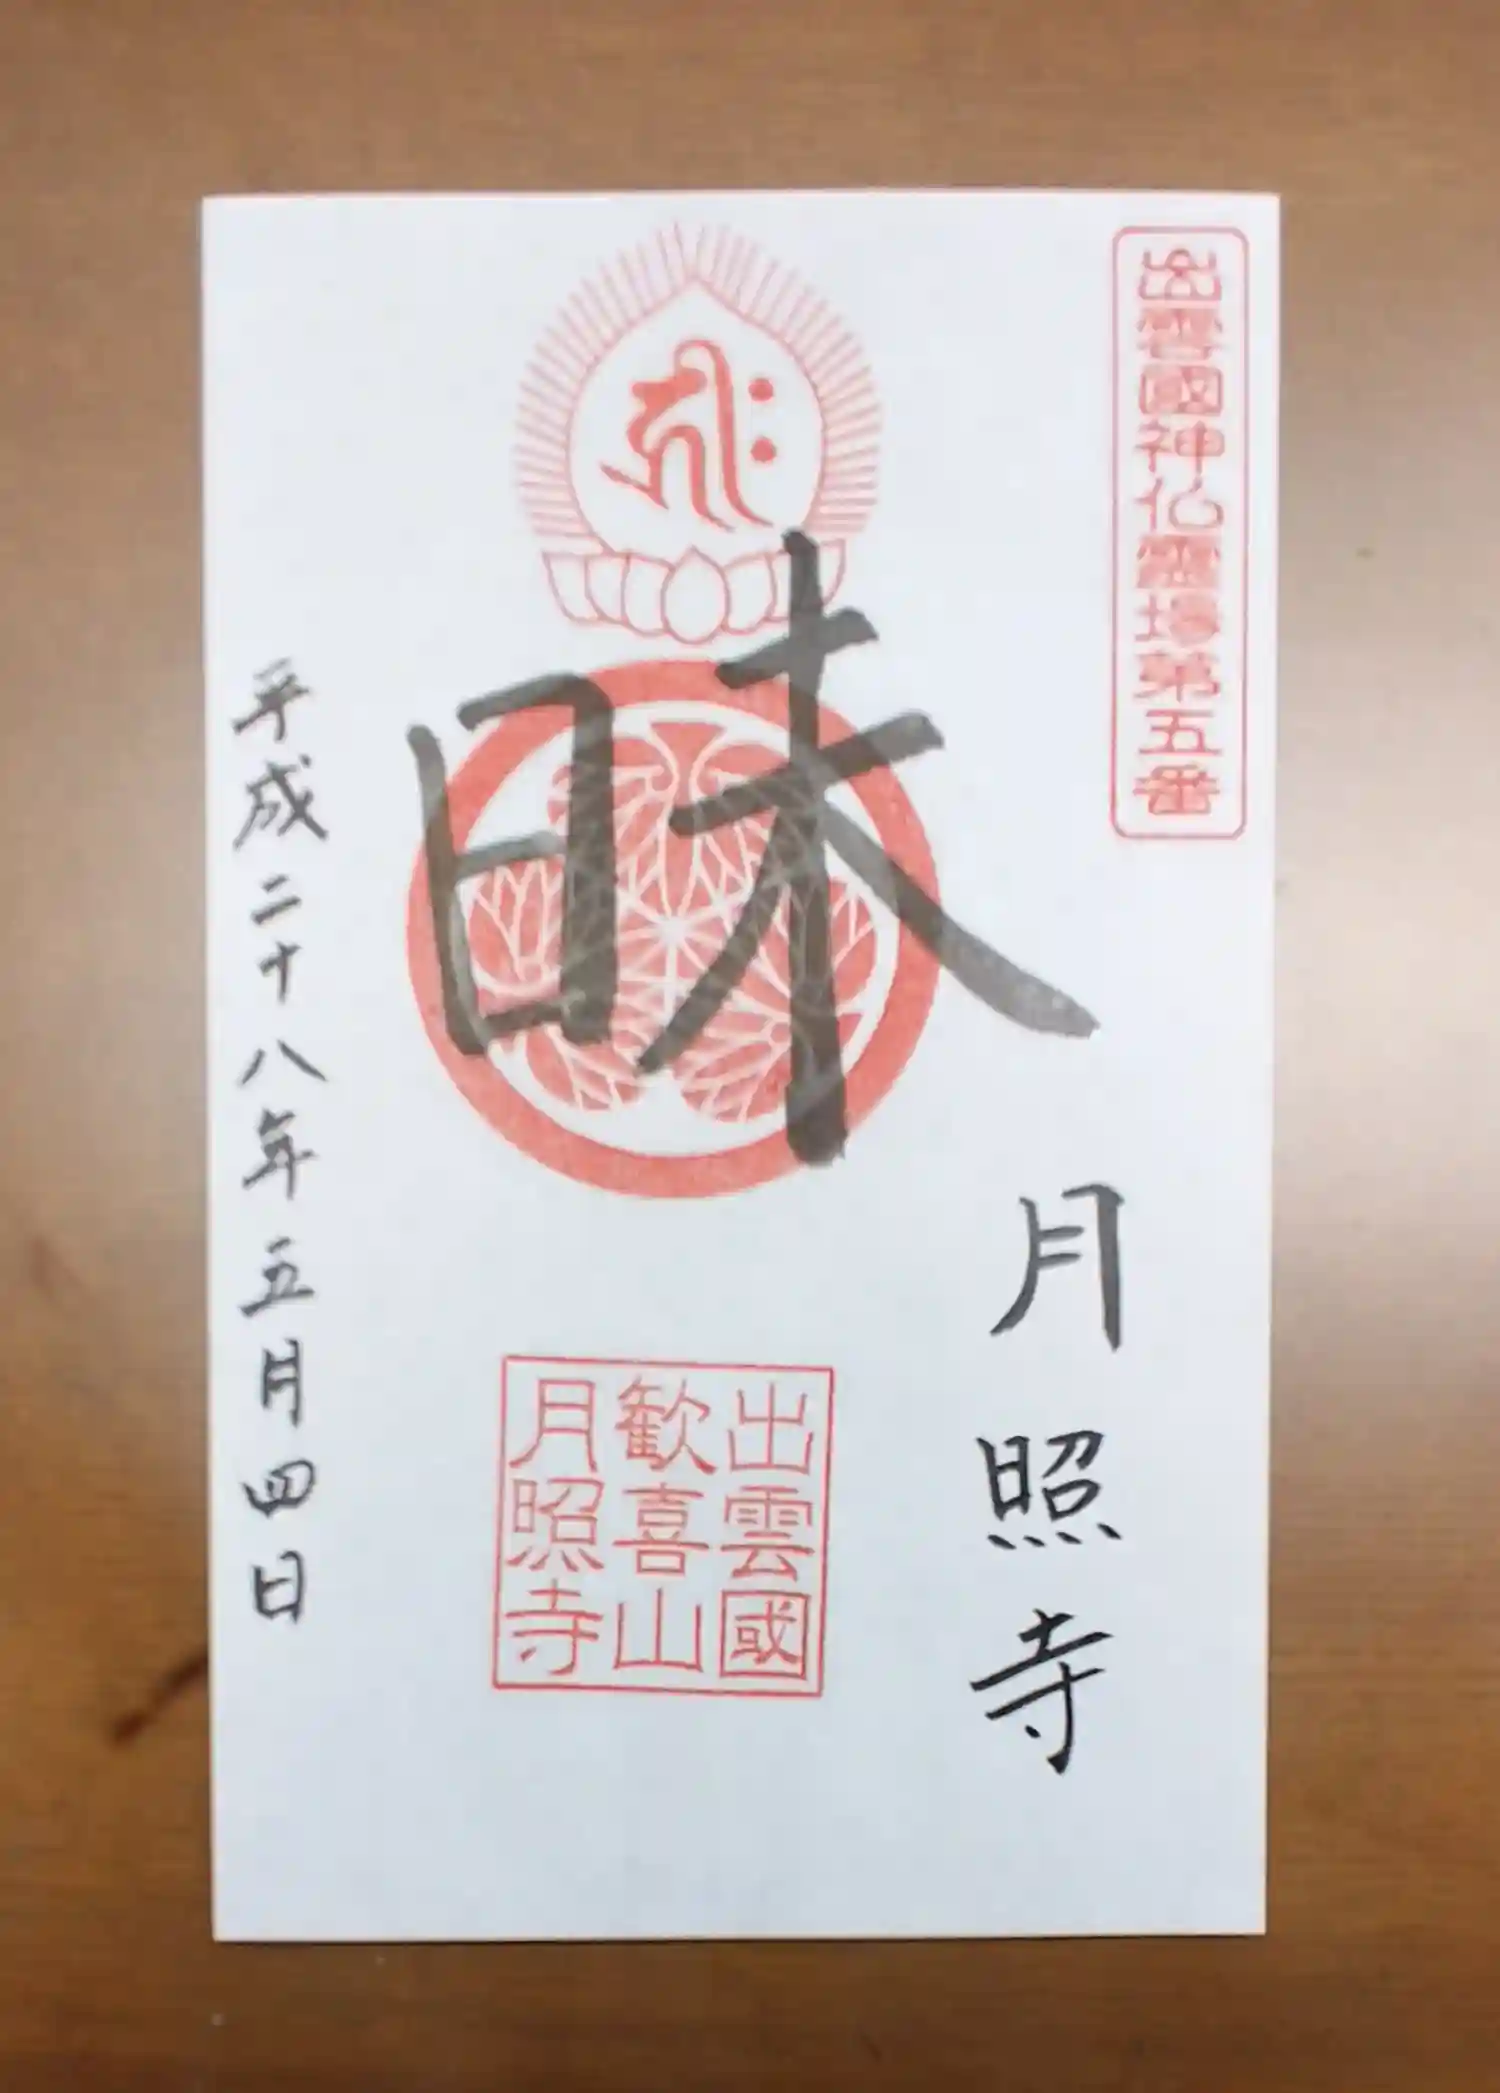 出雲國神仏霊場第五番
月照寺
昧
出雲國
歓喜山
月照寺
平成二十八年五月四日